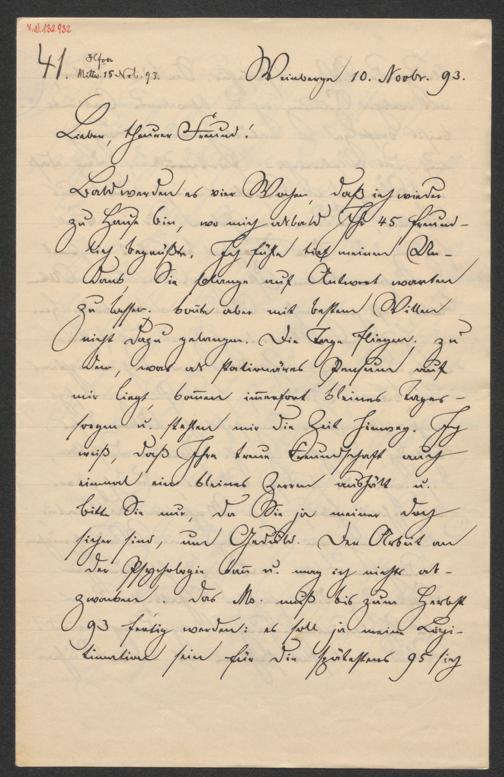 V.d.132.932
41.
Mittw. 15 Nov. 93.
Weinberge 10. Novbr. 93.
Lieber, theurer Freund!
Bald werden es vier Wochen, daß ich wieder
zu Hause bin, wo mich alsbald Ihr 45 freund-
lich begrüßte. Ich fühle tief meinen Un-
dank, Sie solange auf Antwort warten
zu lassen, konnte aber mit bestem Willen
nicht dazu gelangen. Die Tage fliegen. Zu
dem, was als stationäres Pensum auf
mir liegt, kommen immerfort kleine Tages-
sorgen u. stehlen mir die Zeit hinweg. Ich
weiß, daß Ihre treue Freundschaft auch
einmal ein kleines Zerren aushält u.
bitte Sie nur, da Sie ja meiner doch
sicher sind, um Geduld. Der Arbeit an
der Psychologie kann u. mag ich nichts ab-
zwacken. Das Ms. muß bis zum Herbst
93 fertig werden: es soll ja meine Legi-
timation sein für die spätestens 95 sich